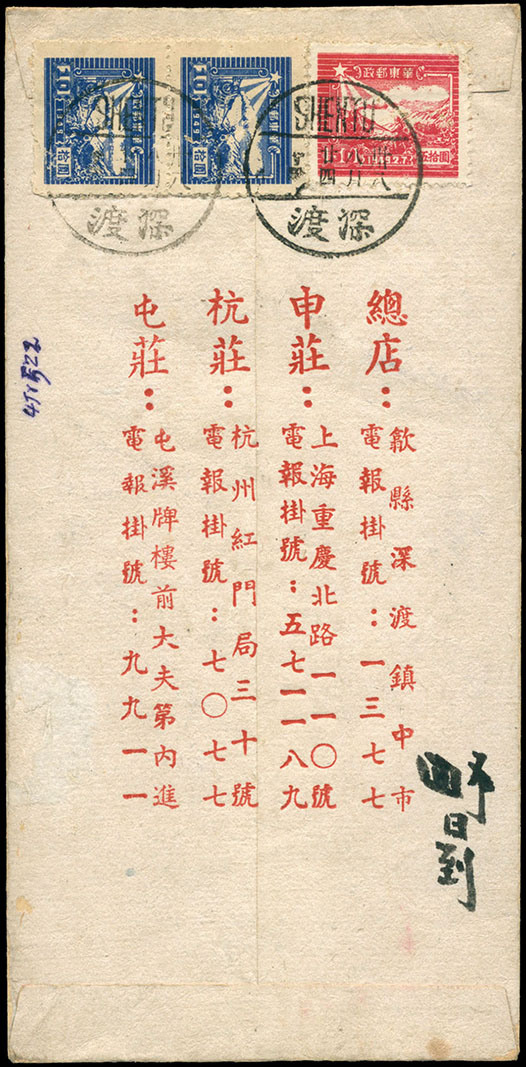 華東郵政
SHENTU
深渡
總店：
歙縣深渡鎮中市
電報掛號：一三七七
申莊：
上海重慶北路一一〇號
電報掛號：五七一一八九
杭莊：
杭州紅門局三十號
電報掛號：七〇七七
屯莊：
屯溪牌樓前大夫第內進
電報掛號：九九一一
拾圓
拾圓
深渡
日到